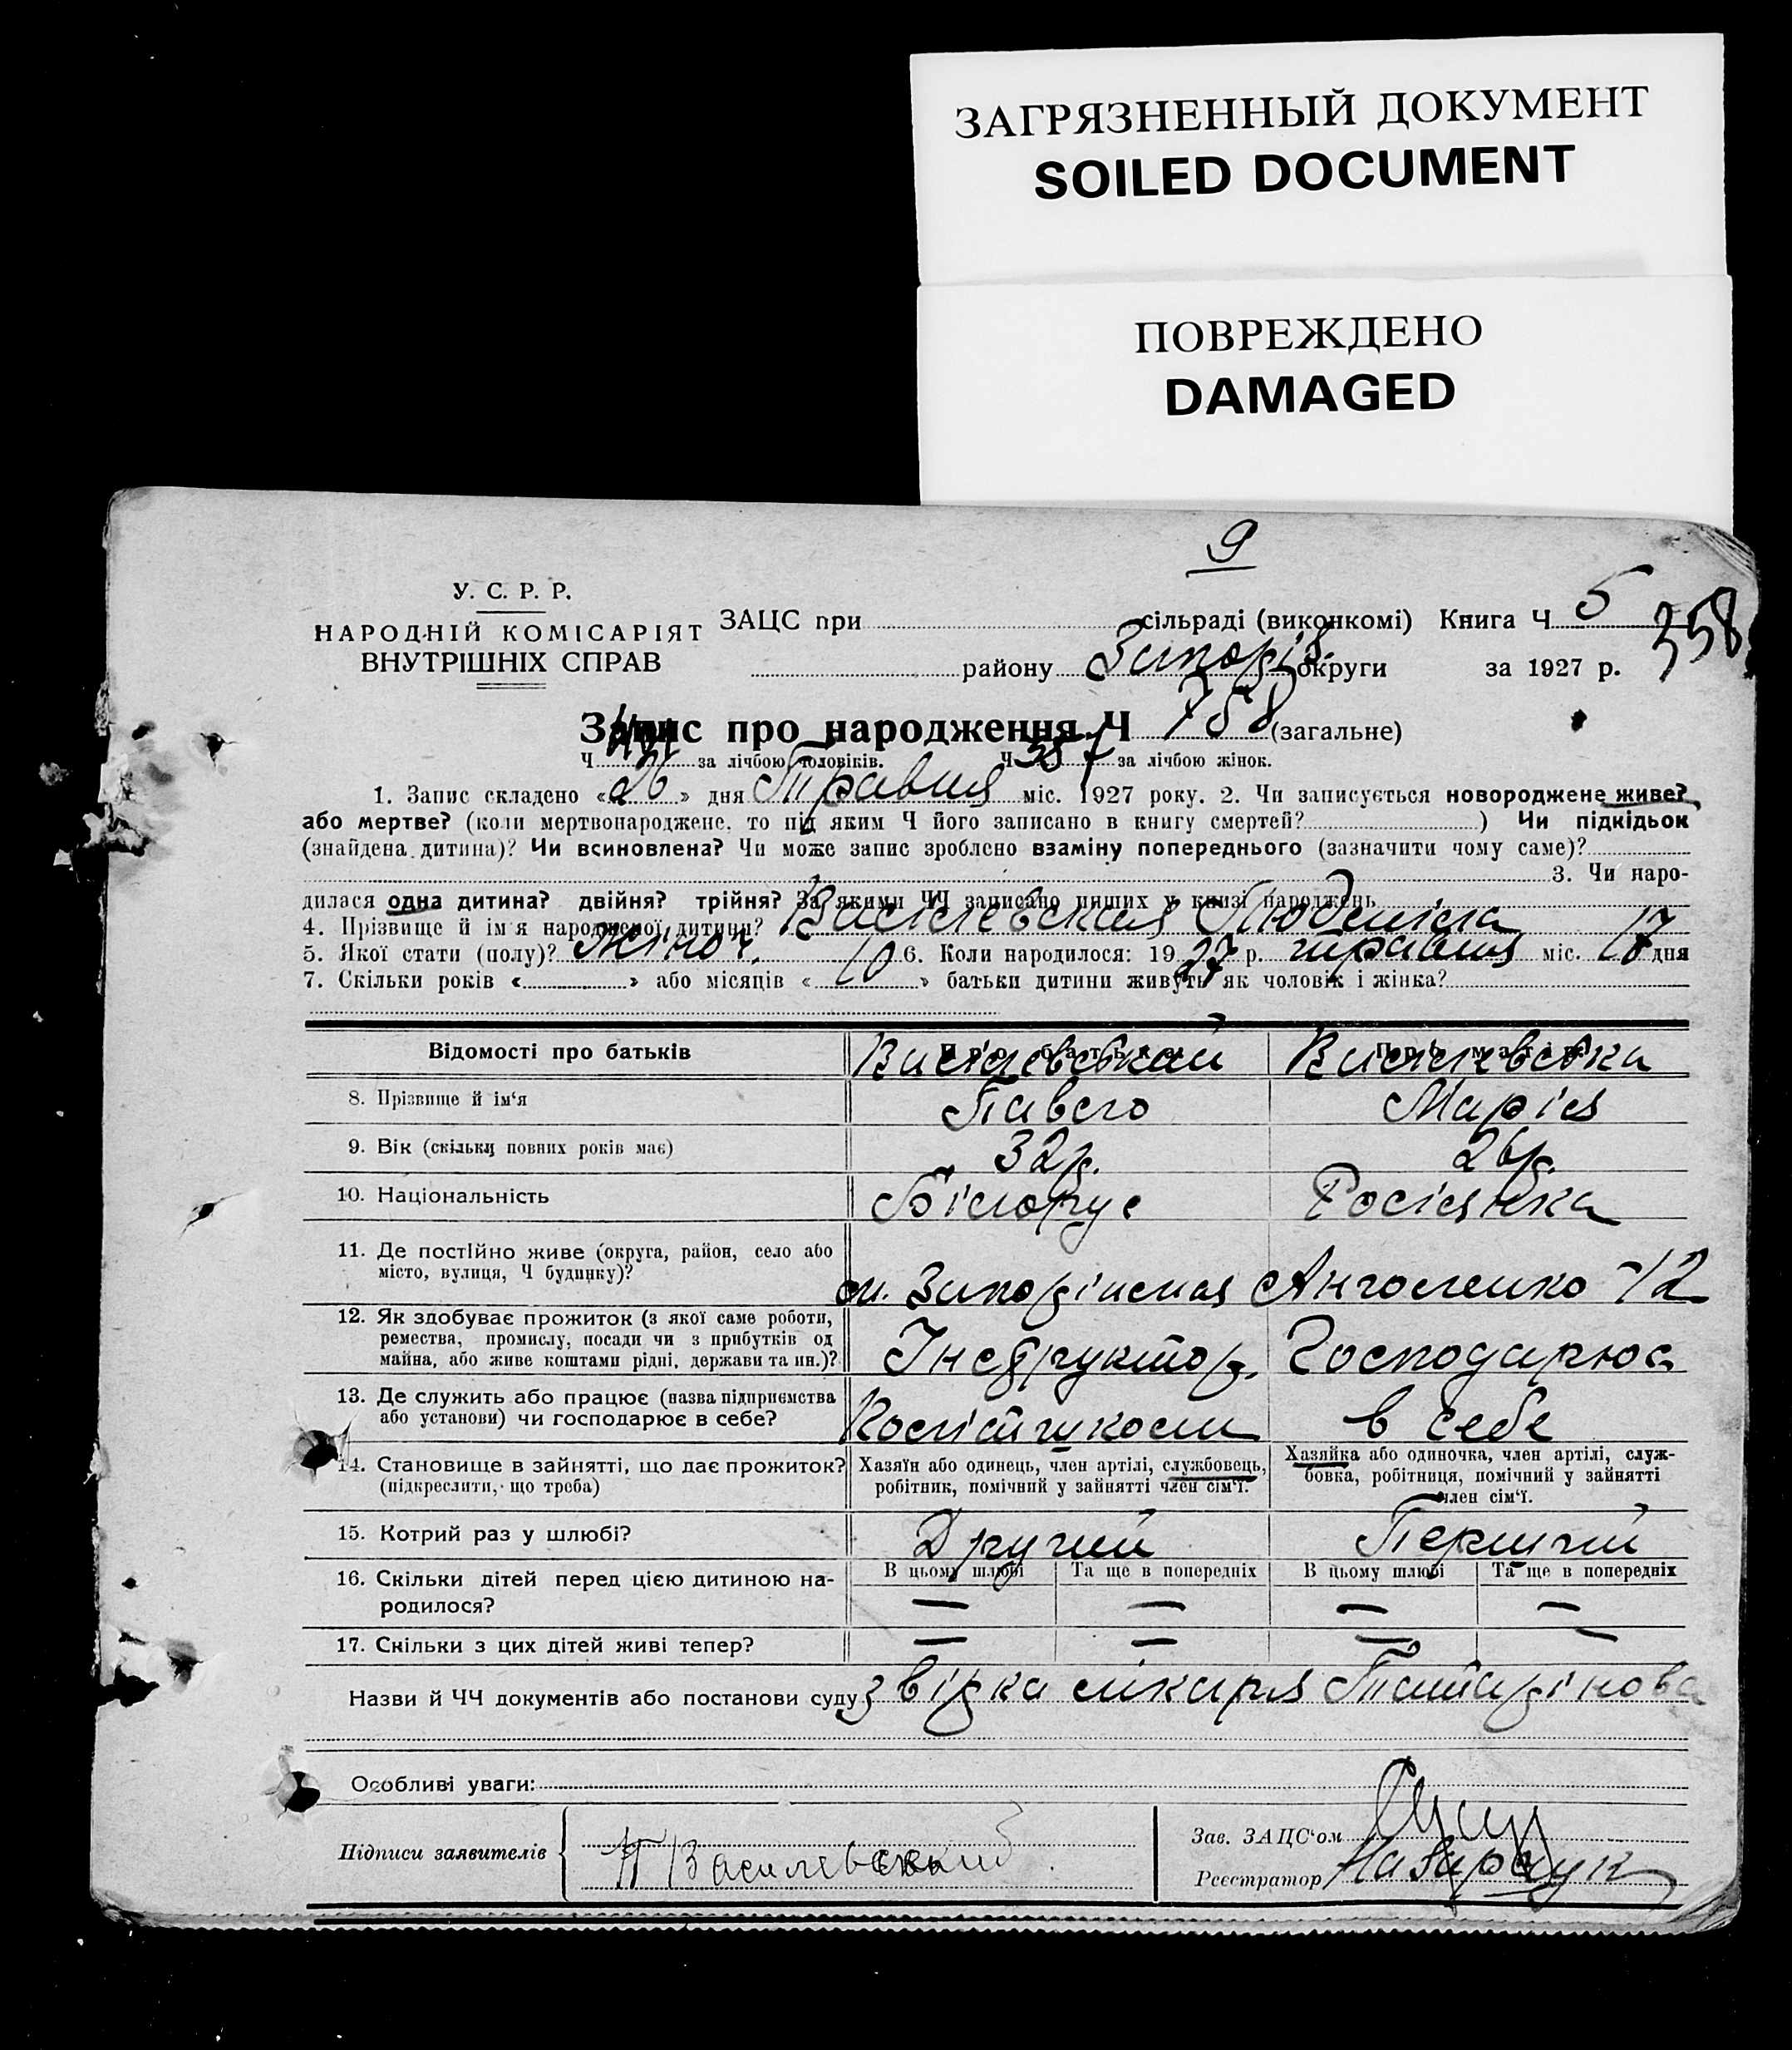 ЗАГРЯЗНЕННЫЙ ДОКУМЕНТ
SOILED DOCUMENT
ПОВРЕЖДЕНО
DAMAGED
9
У. С. Р. Р.
НАРОДНІЙ КОМІСАРІЯТ
ВНУТРІШНІХ СПРАВ
ЗАЦС при сільраді (виконкомі) Книга Ч 5
358
району Запоріз. округи за 1927 р.
Запис про народження Ч 758 (загальне)
Ч за лічбою чоловіків. Ч 357 за лічбою жінок.
1. Запис складено «26» дня Травня міс. 1927 року. 2. Чи записується новороджене живе?
або мертве? (коли мертвонароджене, то під яким Ч його записано в книгу смертей? ) Чи підкідьок
(знайдена дитина)? Чи всиновлена? Чи може запис зроблено взаміну попереднього (зазначити чому саме)?
3. Чи наро-
дилася одна дитина? двійня? трійня? За якими ЧЧ записано инших у книзі народжень
4. Прізвище й ім'я народженої дитини? Васілевская Людміла
5. Якої стати (полу)? Жіноч. 6. Коли народилося: 1927 р. травня міс. 17 дня
7. Скільки років « » або місяців « 10 » батьки дитини живуть як чоловік і жінка?
Відомості про батьків Про батька Про матір
8. Прізвище й ім'я Васілевський Павло Васілевська Марія
9. Вік (скільки повних років має) 32 р. 26 р.
10. Національність Білорус Росіянка
11. Де постійно живе (округа, район, село або
місто, вулиця, Ч будинку)? м. Запоріжжя Анголенко 12
12. Як здобуває прожиток (з якої саме роботи,
ремества, промислу, посади чи з прибутків од
майна, або живе коштами рідні, держави та ин.)? Інструктор. Господарює
13. Де служить або працює (назва підприємства
або установи) чи господарює в себе? в себе
14. Становище в зайнятті, що дає прожиток?
(підкреслити, що треба)
Хазяїн або одинець, член артілі, службовець,
робітник, помічний у зайнятті член сім'ї.
Хазяйка або одиночка, член артілі, служ-
бовка, робітниця, помічний у зайнятті
член сім'ї.
15. Котрий раз у шлюбі? Другий Перший
16. Скільки дітей перед цією дитиною на-
родилося?
В цьому шлюбі Та ще в попередніх В цьому шлюбі Та ще в попередніх
— — — —
17. Скільки з цих дітей живі тепер? — — — —
Назви й ЧЧ документів або постанови суду звідка лікаря
Особливі уваги:
Підписи заявителів П Василевский
Зав. ЗАЦС'ом
Реєстратор Назарчук